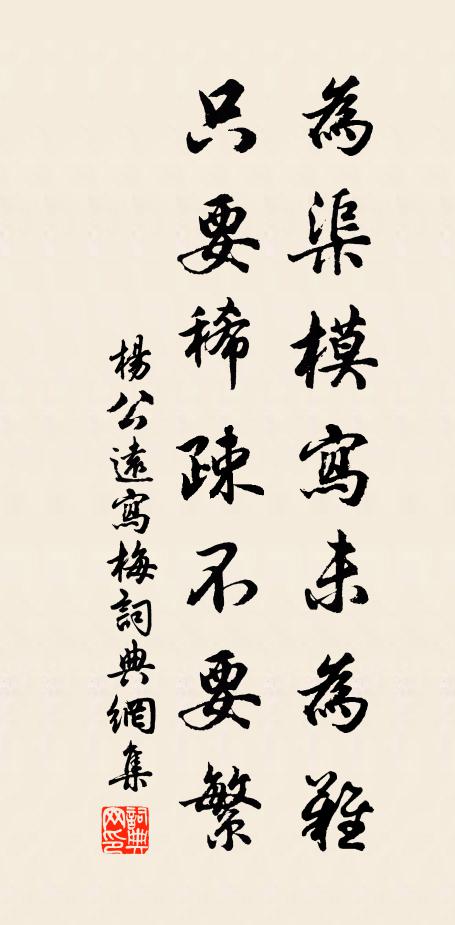 為渠模寫未為難
只要稀疎不要繁
楊公遠寫梅詞典網集
詞典网印